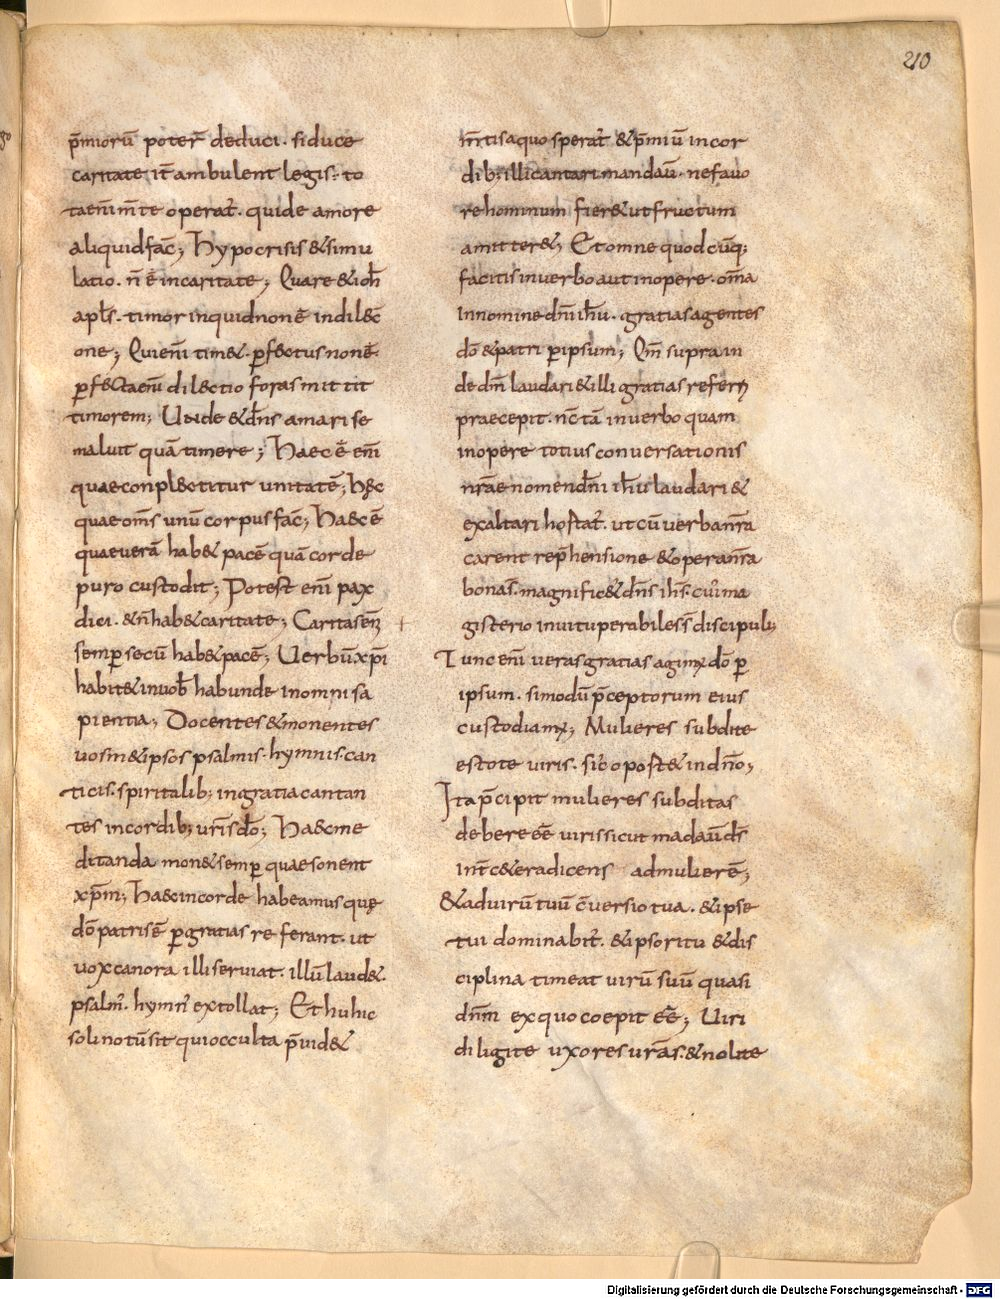 210
p̄miorū poter̄ deduci · si duce
caritate it̄ ambulent legis · to
ta eni m̄te operat᷑ · qui de amore
aliquid fac̄; Hypocrisis & simu
latio · n̄ ē in caritate; Quare & ioh̄
apl̄s · timor inquid non ē in dil&c
one; Qui eni tim& · ꝑf&ctus non ē ·
ꝑf&cta eni dil&ctio foras mittit
timorem; Unde & dn̄s amari se
maluit quā timere; Haec ē eni
quae conpl&ctitur unitatē; hęc
quae om̄s unū corpus fac̄; Ha&c ē
quae uerā hab& pacē quā corde
puro custodit; Potest eni pax
dici · & n̄ hab& caritate; Caritas eni
semꝑ secū hab& pacē; Uerbū xp̄i
habit& in uob̄ habunde in omni sa
pientia; Docentes & monentes
uosm&ipsos psalmis · hymnis · can
ticis · spiritalib; in gratia cantan
tes in cordib; ur̄is dō; Ha&c me
ditanda mon& semꝑ quae sonent
xp̄m; Ha&c in corde habeamus quę
dō patri sē ꝑ gratias referant · ut
uox canora illi seruiat · illū laud& ·
psalm᷑ · hymn᷑ extollat; Et huic
soli notū sit qui occulta p̄uid&
m̄tis a quo sperat᷑ & p̄miū in cor
dib; illi cantari mandau᷑ · ne fauo
re hominum fier& ut fructum
amitter&; Et omne quodcūq;
facitis in uerbo aut in opere · om̄a
in nomine dn̄i ih̄u · gratias agentes
dō & patri ꝑ ipsum; Qm̄ supra in
de dn̄m laudari & illi gratias referri
praecepit · nc̄ tā in uerbo quam
in opere totius conuersationis
nr̄ae nomen dn̄i ih̄u laudari &
exaltari hortat᷑ · ut cū uerba nr̄a
carent rep̄hensione & opera nr̄a
bona s̄ · magnific& dn̄s ih̄s · cui᷑ ma
gisterio inuituperabiles s̄ discipuli;
Tunc eni ueras gratias agim᷑ dō ꝑ
ipsum · si modū p̄ceptorum eius
custodiam᷑; Mulieres subdite
estote uiris · sic̄ oport& in dn̄o;
Ita p̄cipit mulieres subditas
debere eē uiris sicut mādau᷑ dš
int̄ c&era dicens ad mulierē;
& ad uirū tuū c̄uersio tua · & ipse
tui dominabit᷑ · & ipso ritu & dis
ciplina timeat uirū suū quasi
dn̄m ex quo coepit eē; Uiri
diligite uxores ur̄as · & nolite
Digitalisierung gefördert durch die Deutsche Forschungsgemeinschaft - DFG